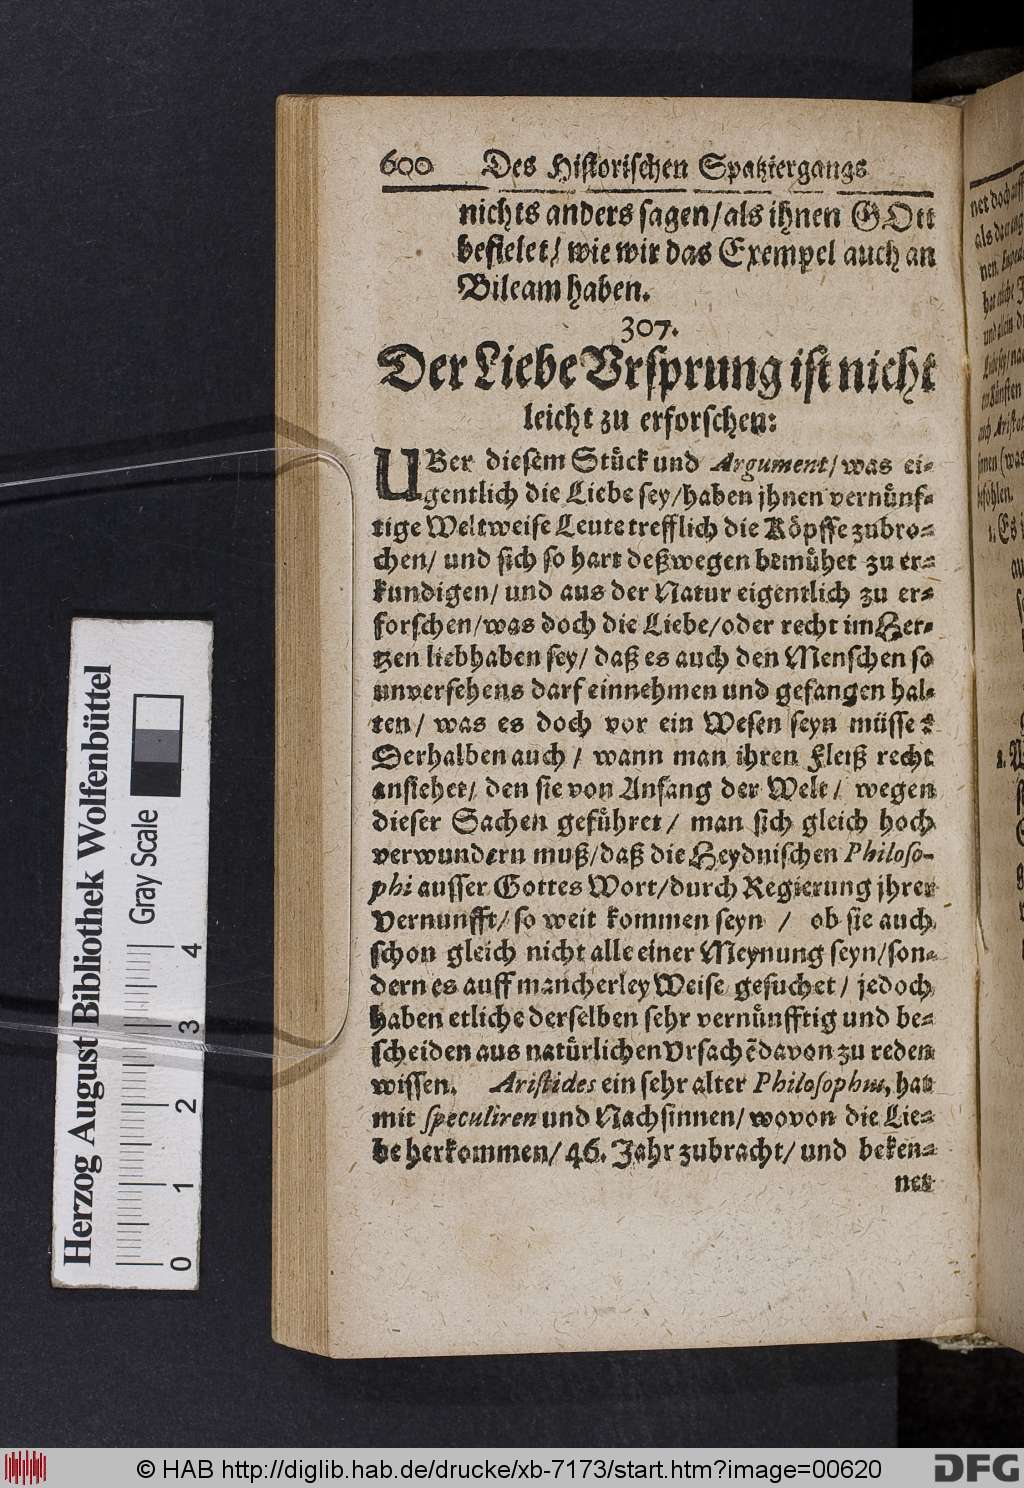 600 Des Historischen Spatziergangs
nichts anders sagen/als ihnen GOtt
befielet/ wie wir das Exempel auch an
Bileam haben.
307.
Der Liebe Vrsprung ist nicht
leicht zu erforschen:
UBer diesem Stück und Argument/was ei-
gentlich die Liebe sey/haben jhnen vernünf-
tige Weltweise Leute trefflich die Köpffe zubro-
chen/ und sich so hart deßwegen bemühet zu er-
kundigen/ und aus der Natur eigentlich zu er-
forschen/was doch die Liebe/oder recht im Her-
tzen liebhaben sey/ daß es auch den Menschen so
unversehens darf einnehmen und gefangen hal-
ten/ was es doch vor ein Wesen seyn müsse?
Derhalben auch / wann man ihren Fleiß recht
ansiehet/ den sie von Anfang der Welt/ wegen
dieser Sachen geführet / man sich gleich hoch
verwundern muß/daß die Heydnischen Philoso-
phi ausser Gottes Wort/durch Regierung jhrer
Vernunfft/ so weit kommen seyn / ob sie auch
schon gleich nicht alle einer Meynung seyn/son-
dern es auff mancherley Weise gesuchet / jedoch
haben etliche derselben sehr vernünfftig und be-
scheiden aus natürlichen Vrsachẽ davon zu reden
wissen. Aristides ein sehr alter Philosophus, hat
mit speculiren und Nachsinnen/ wovon die Lie-
be herkommen/ 46. Jahr zubracht/ und beken-
net
net doch
als
nen.
und allein
auch
1. Es
Herzog August Bibliothek Wolfenbüttel
Gray Scale
0 1 2 3 4
© HAB http://diglib.hab.de/drucke/xb-7173/start.htm?image=00620
DFG